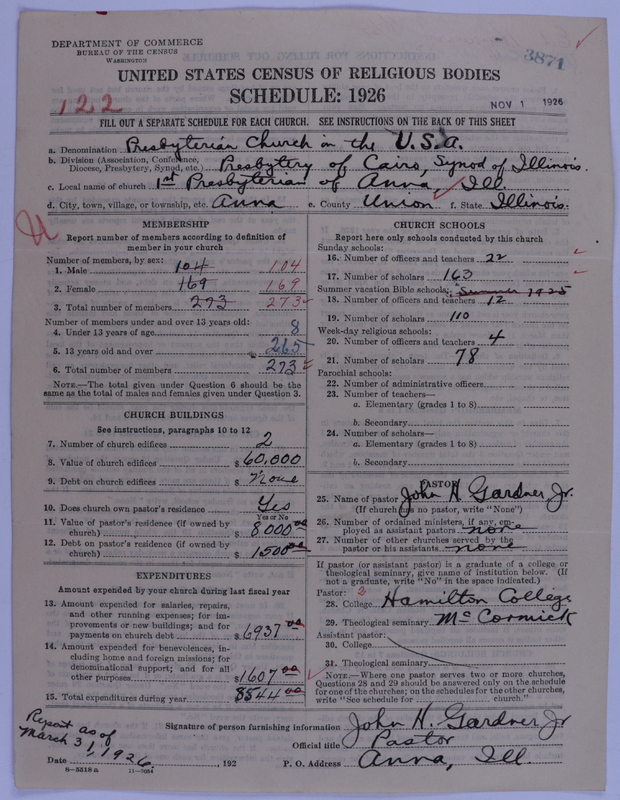 DEPARTMENT OF COMMERCE
BUREAU OF THE CENSUS
WASHINGTON
3871
UNITED STATES CENSUS OF RELIGIOUS BODIES
SCHEDULE: 1926
122
NOV 1 1926
FILL OUT A SEPARATE SCHEDULE FOR EACH CHURCH. SEE INSTRUCTIONS ON THE BACK OF THIS SHEET
a. Denomination Presbyterian Church in the U.S.A.
b. Division (Association, Conference, Diocese, Presbytery, Synod, etc.) Presbytery of Cairo, Synod of Illinois.
c. Local name of church 1st Presbyterian of Anna, Ill.
d. City, town, village, or township, etc. Anna e. County Union f. State Illinois.
MEMBERSHIP
Report number of members according to definition of
member in your church
Number of members, by sex:
1. Male 104 104
2. Female 169 169
3. Total number of members 273 273
Number of members under and over 13 years old:
4. Under 13 years of age 8
5. 13 years old and over 265
6. Total number of members 273
NOTE.—The total given under Question 6 should be the
same as the total of males and females given under Question 3.
CHURCH BUILDINGS
See instructions, paragraphs 10 to 12
7. Number of church edifices 2
8. Value of church edifices $ 60,000
9. Debt on church edifices $ None
10. Does church own pastor's residence Yes
Yes or No
11. Value of pastor's residence (if owned by
church) $ 8000 00
12. Debt on pastor's residence (if owned by
church) $ 1500 00
EXPENDITURES
Amount expended by your church during last fiscal year
13. Amount expended for salaries, repairs,
and other running expenses; for im-
provements or new buildings; and for
payments on church debt $ 6937 00
14. Amount expended for benevolences, in-
cluding home and foreign missions; for
denominational support; and for all
other purposes $ 1607 00
15. Total expenditures during year 8544 00
CHURCH SCHOOLS
Report here only schools conducted by this church
Sunday schools:
16. Number of officers and teachers 22
17. Number of scholars 163
Summer vacation Bible schools: Summer 1925
18. Number of officers and teachers 12
19. Number of scholars 110
Week-day religious schools:
20. Number of officers and teachers 4
21. Number of scholars 78
Parochial schools:
22. Number of administrative officers
23. Number of teachers—
a. Elementary (grades 1 to 8)
b. Secondary
24. Number of scholars—
a. Elementary (grades 1 to 8)
b. Secondary
PASTOR
25. Name of pastor John H. Gardner, Jr.
(If church has no pastor, write "None")
26. Number of ordained ministers, if any, em-
ployed as assistant pastors none
27. Number of other churches served by the
pastor or his assistants none
If pastor (or assistant pastor) is a graduate of a college or
theological seminary, give name of institution below. (If
not a graduate, write "No" in the space indicated.)
Pastor: 2
28. College Hamilton College
29. Theological seminary McCormick
Assistant pastor:
30. College
31. Theological seminary
NOTE.—Where one pastor serves two or more churches,
Questions 28 and 29 should be answered only on the schedule
for one of the churches; on the schedules for the other churches,
write "See schedule for church."
Signature of person furnishing information John H. Gardner Jr
Official title Pastor
Report as of
March 31, 1926.
Date , 192
P. O. Address Anna, Ill.
8—5518a 11—9034